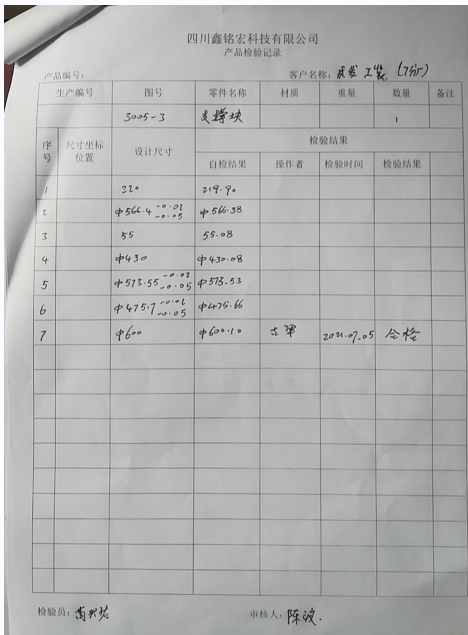 四川鑫铭宏科技有限公司
产品检验记录
产品编号： 客户名称：成发工装（7分厂）
生产编号 图号 零件名称 材质 重量 数量 备注
3005-3 支撑块 1
序号 尺寸坐标位置 设计尺寸 检验结果
自检结果 操作者 检验时间 检验结果
1 220 219.90
2 φ566.4 -0.02 -0.05 φ566.38
3 55 55.08
4 φ430 φ430.08
5 φ573.55 -0.02 -0.05 φ573.53
6 φ475.7 -0.02 -0.05 φ475.66
7 φ600 φ600.10 2021.07.05 合格
检验员： 审核人：陈波